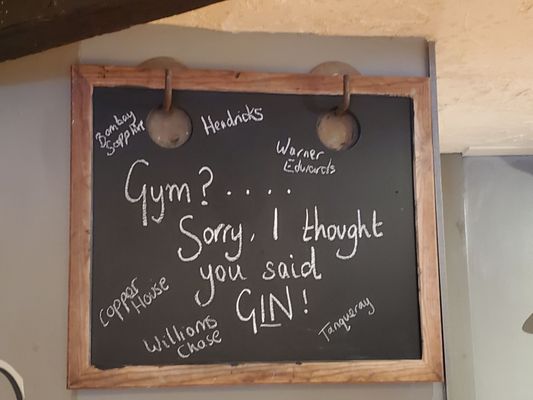 Bombay
Sapphire
Hendricks
Warner
Edwards
Gym? . . . .
Sorry, I thought
you said
GIN!
Copper
House
Williams
Chase
Tanqueray